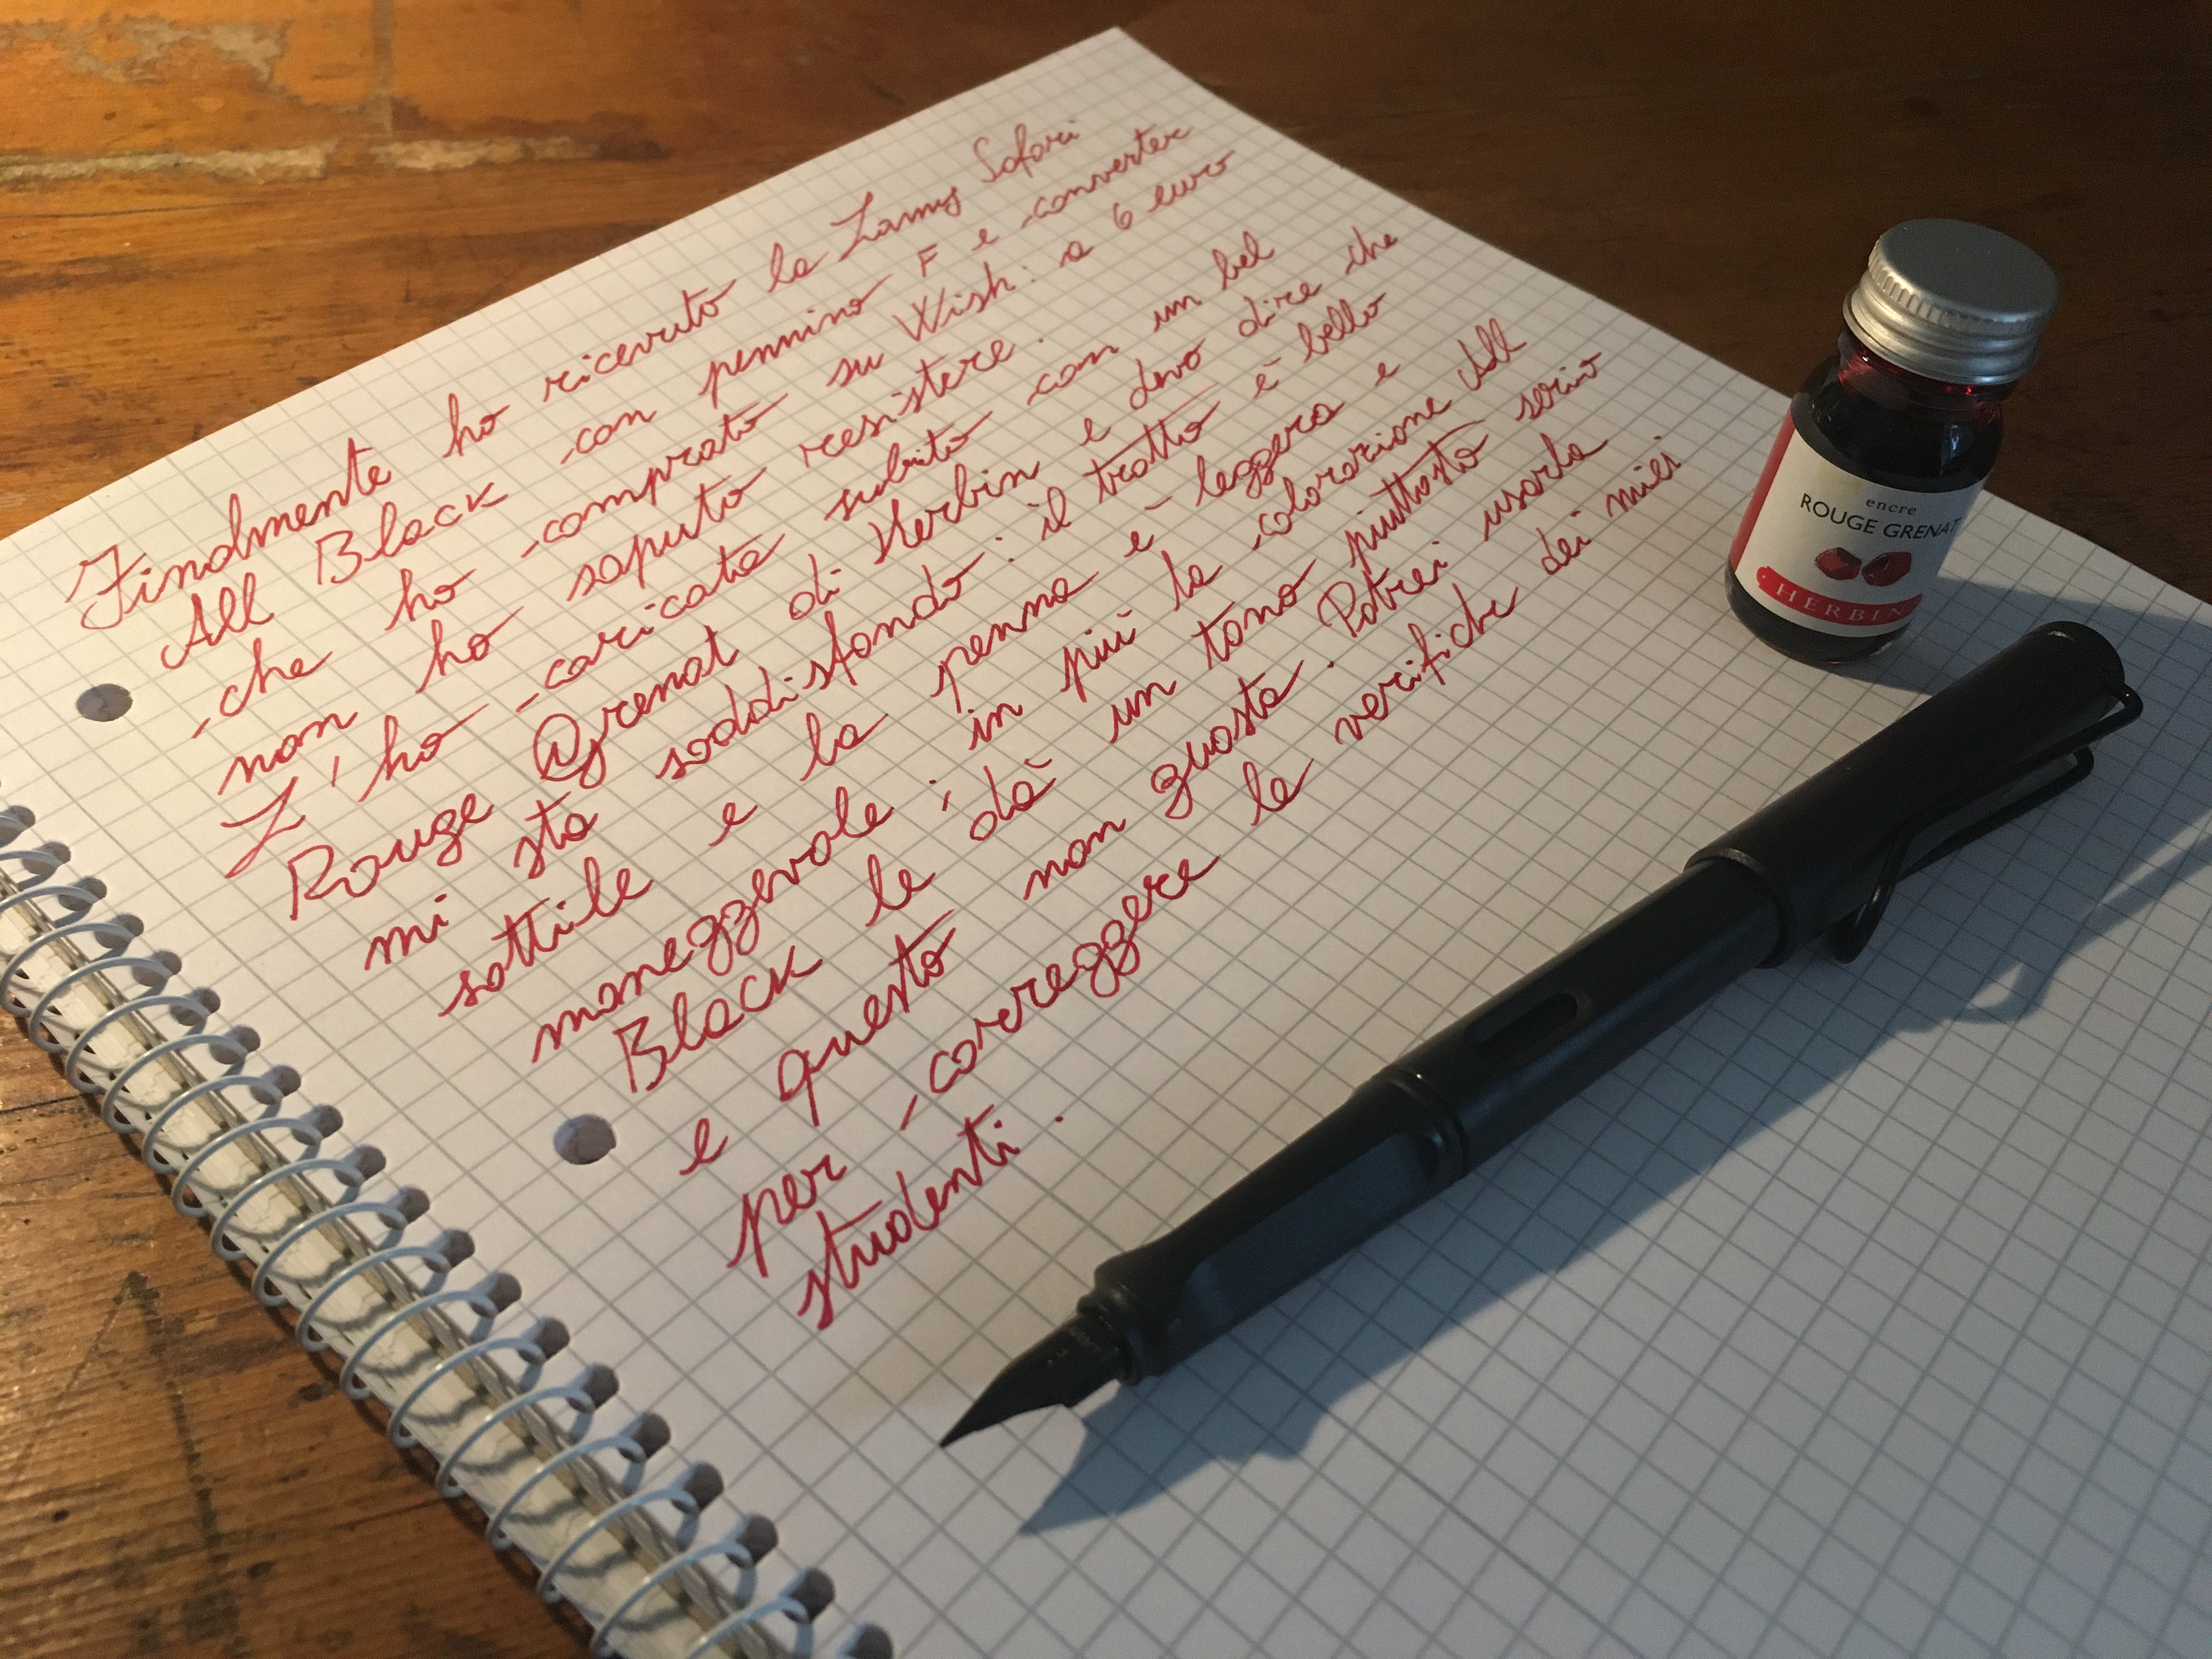 Finalmente ho ricevuto la Lamy Safari
All Black con pennino F e converter
che ho comprato su Wish: a 6 euro
non ho saputo resistere.
L'ho caricata subito con un bel
Rouge Grenat di Herbin e devo dire che
mi sta soddisfando: il tratto è bello
sottile e la penna è leggera e
maneggevole; in più la colorazione All
Black le dà un tono piuttosto serio
e questo non guasta. Potrei usarla
per correggere le verifiche dei miei
studenti.
encre
ROUGE GRENAT
HERBIN